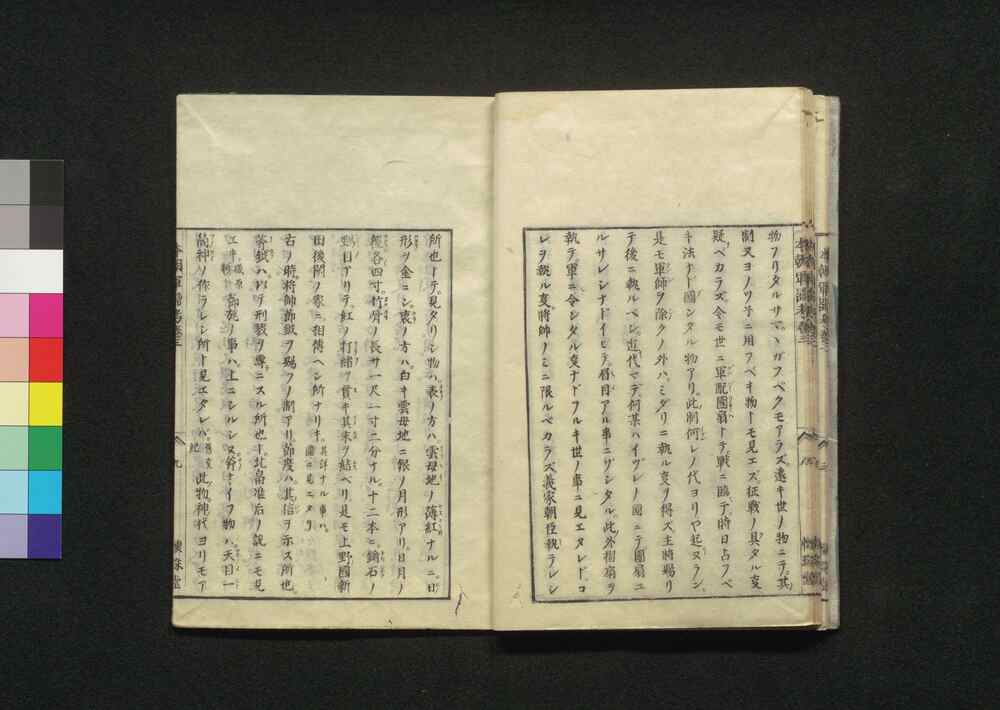 物フリタルサマ、マガフベクモアラズ、遠キ世ノ物ニテ、其
制又ヨノツ子ニ用フベキ物トモ見エズ、征戦ノ具タル叓
疑ベカラズ、今モ世ニ軍配團扇トテ、戦ニ臨テ、時日占フベ
キ法ナド圖シタル物アリ、此制何レノ代ヨリヤ起ヌラン、
是モ軍師ヲ除クノ外ハ、ミダリニ執ル叓ヲ得ズ、主將賜リ
テ後ニ執ルベシ、近代マデ何某ハイヅレノ國ニテ團扇ユ
ルサレシナドイヒテ、眉目アル事ニゾシタル、此外摺扇ヲ
執テ、軍ニ令シタル叓ナド、フルキ世ノ事ニ見エタレド、コ
レヲ執ル叓、將帥ノミニ限ルベカラズ、義家朝臣執ラレシ
所也トテ、見タリシ物ハ、表ノ方ハ、雲母地ノ薄紅ナルニ、日
形ヲ金ニシ、裏ノ方ハ、白キ雲母地ニ銀ノ月形アリ、日月ノ
徑各四寸、竹骨ノ長サ一尺一寸二分ナル、十二本ニ、鍮石ノ
蟹目アリテ、紅ノ打緒ヲ貫キ其末ヲ結ベリ、是モ上野國新
田後閑ノ家ニ相傳ヘシ所ナリキ、其詳ナル事ハ、圖ニ見ニタリ
古ノ時、將帥ニ節鉞ヲ賜フノ制アリ、節度ハ、其信ヲ示ス所也、
斧鉞ハ、以テ刑罰ヲ專ニスル所也ト、北畠准后ノ説ニモ見
エキ、節旄ノ事ハ、上ニシルシヌ、斧ナイフ物ハ、天目一
箇神ノ作ラレシ所ト見エタレバ、此物、神代ヨリモア
本朝軍器考卷三
九